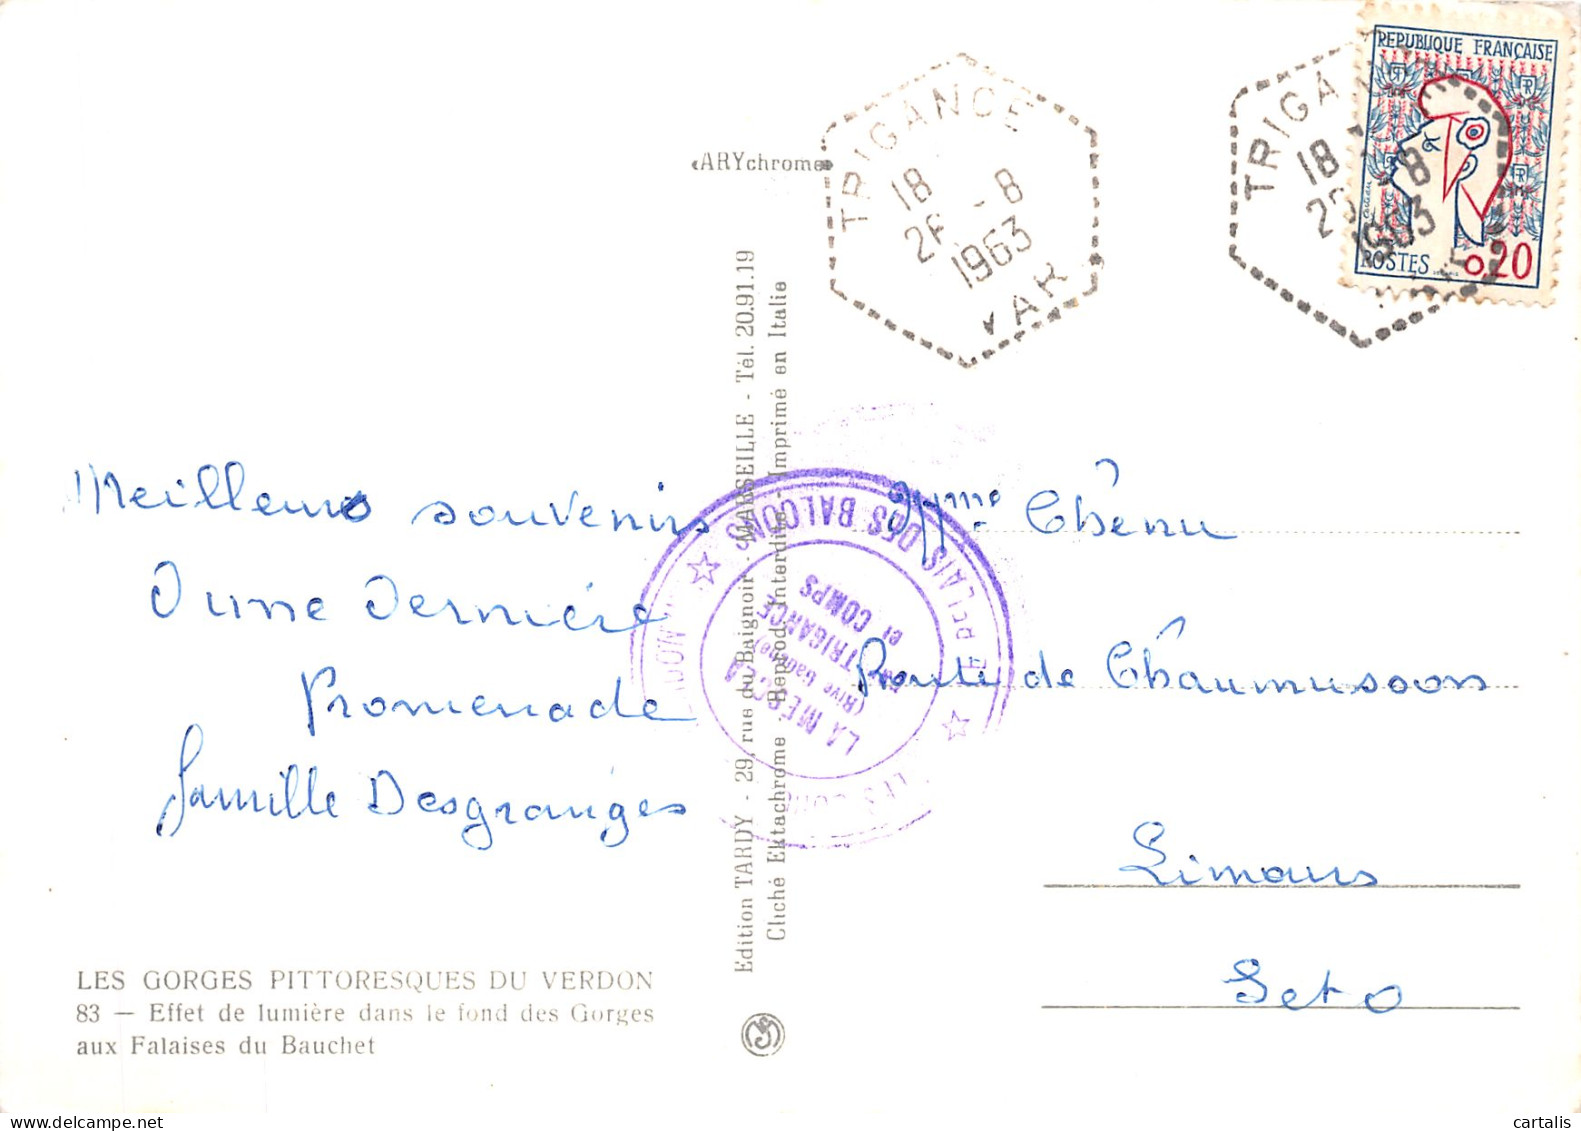 REPUBLIQUE FRANÇAISE
POSTES 0,20
TRIGANCE
18
26 -8
1963
VAR
TRIGANCE
18
26 -8
1963
ARYchrome
Meilleurs souvenirs
d'une dernière
Promenade
famille Desgranges
LES GORGES PITTORESQUES DU VERDON
83 — Effet de lumière dans le fond des Gorges
aux Falaises du Bauchet
Edition TARDY - 29, rue du Baignoir - MARSEILLE - Tél. 20.91.19
Cliché Ektachrome Reprod. Interdite - Imprimé en Italie
RELAIS DES BALCONS
LA MESCLA
(Rive Gauche)
TRIGANCE
et COMPS
Mme Chenu
Route de Chaumusson
Limours
Set O
cartalis